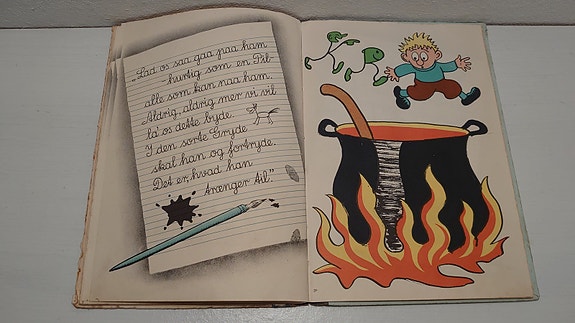 „Lad os saa gaa paa ham
hurtig som en Pil
alle som kan naa ham.
Aldrig, aldrig mer vi vil
la' os dette byde.
I den sorte Gryde
skal han og fortryde.
Det er, hvad han
trænger til.”